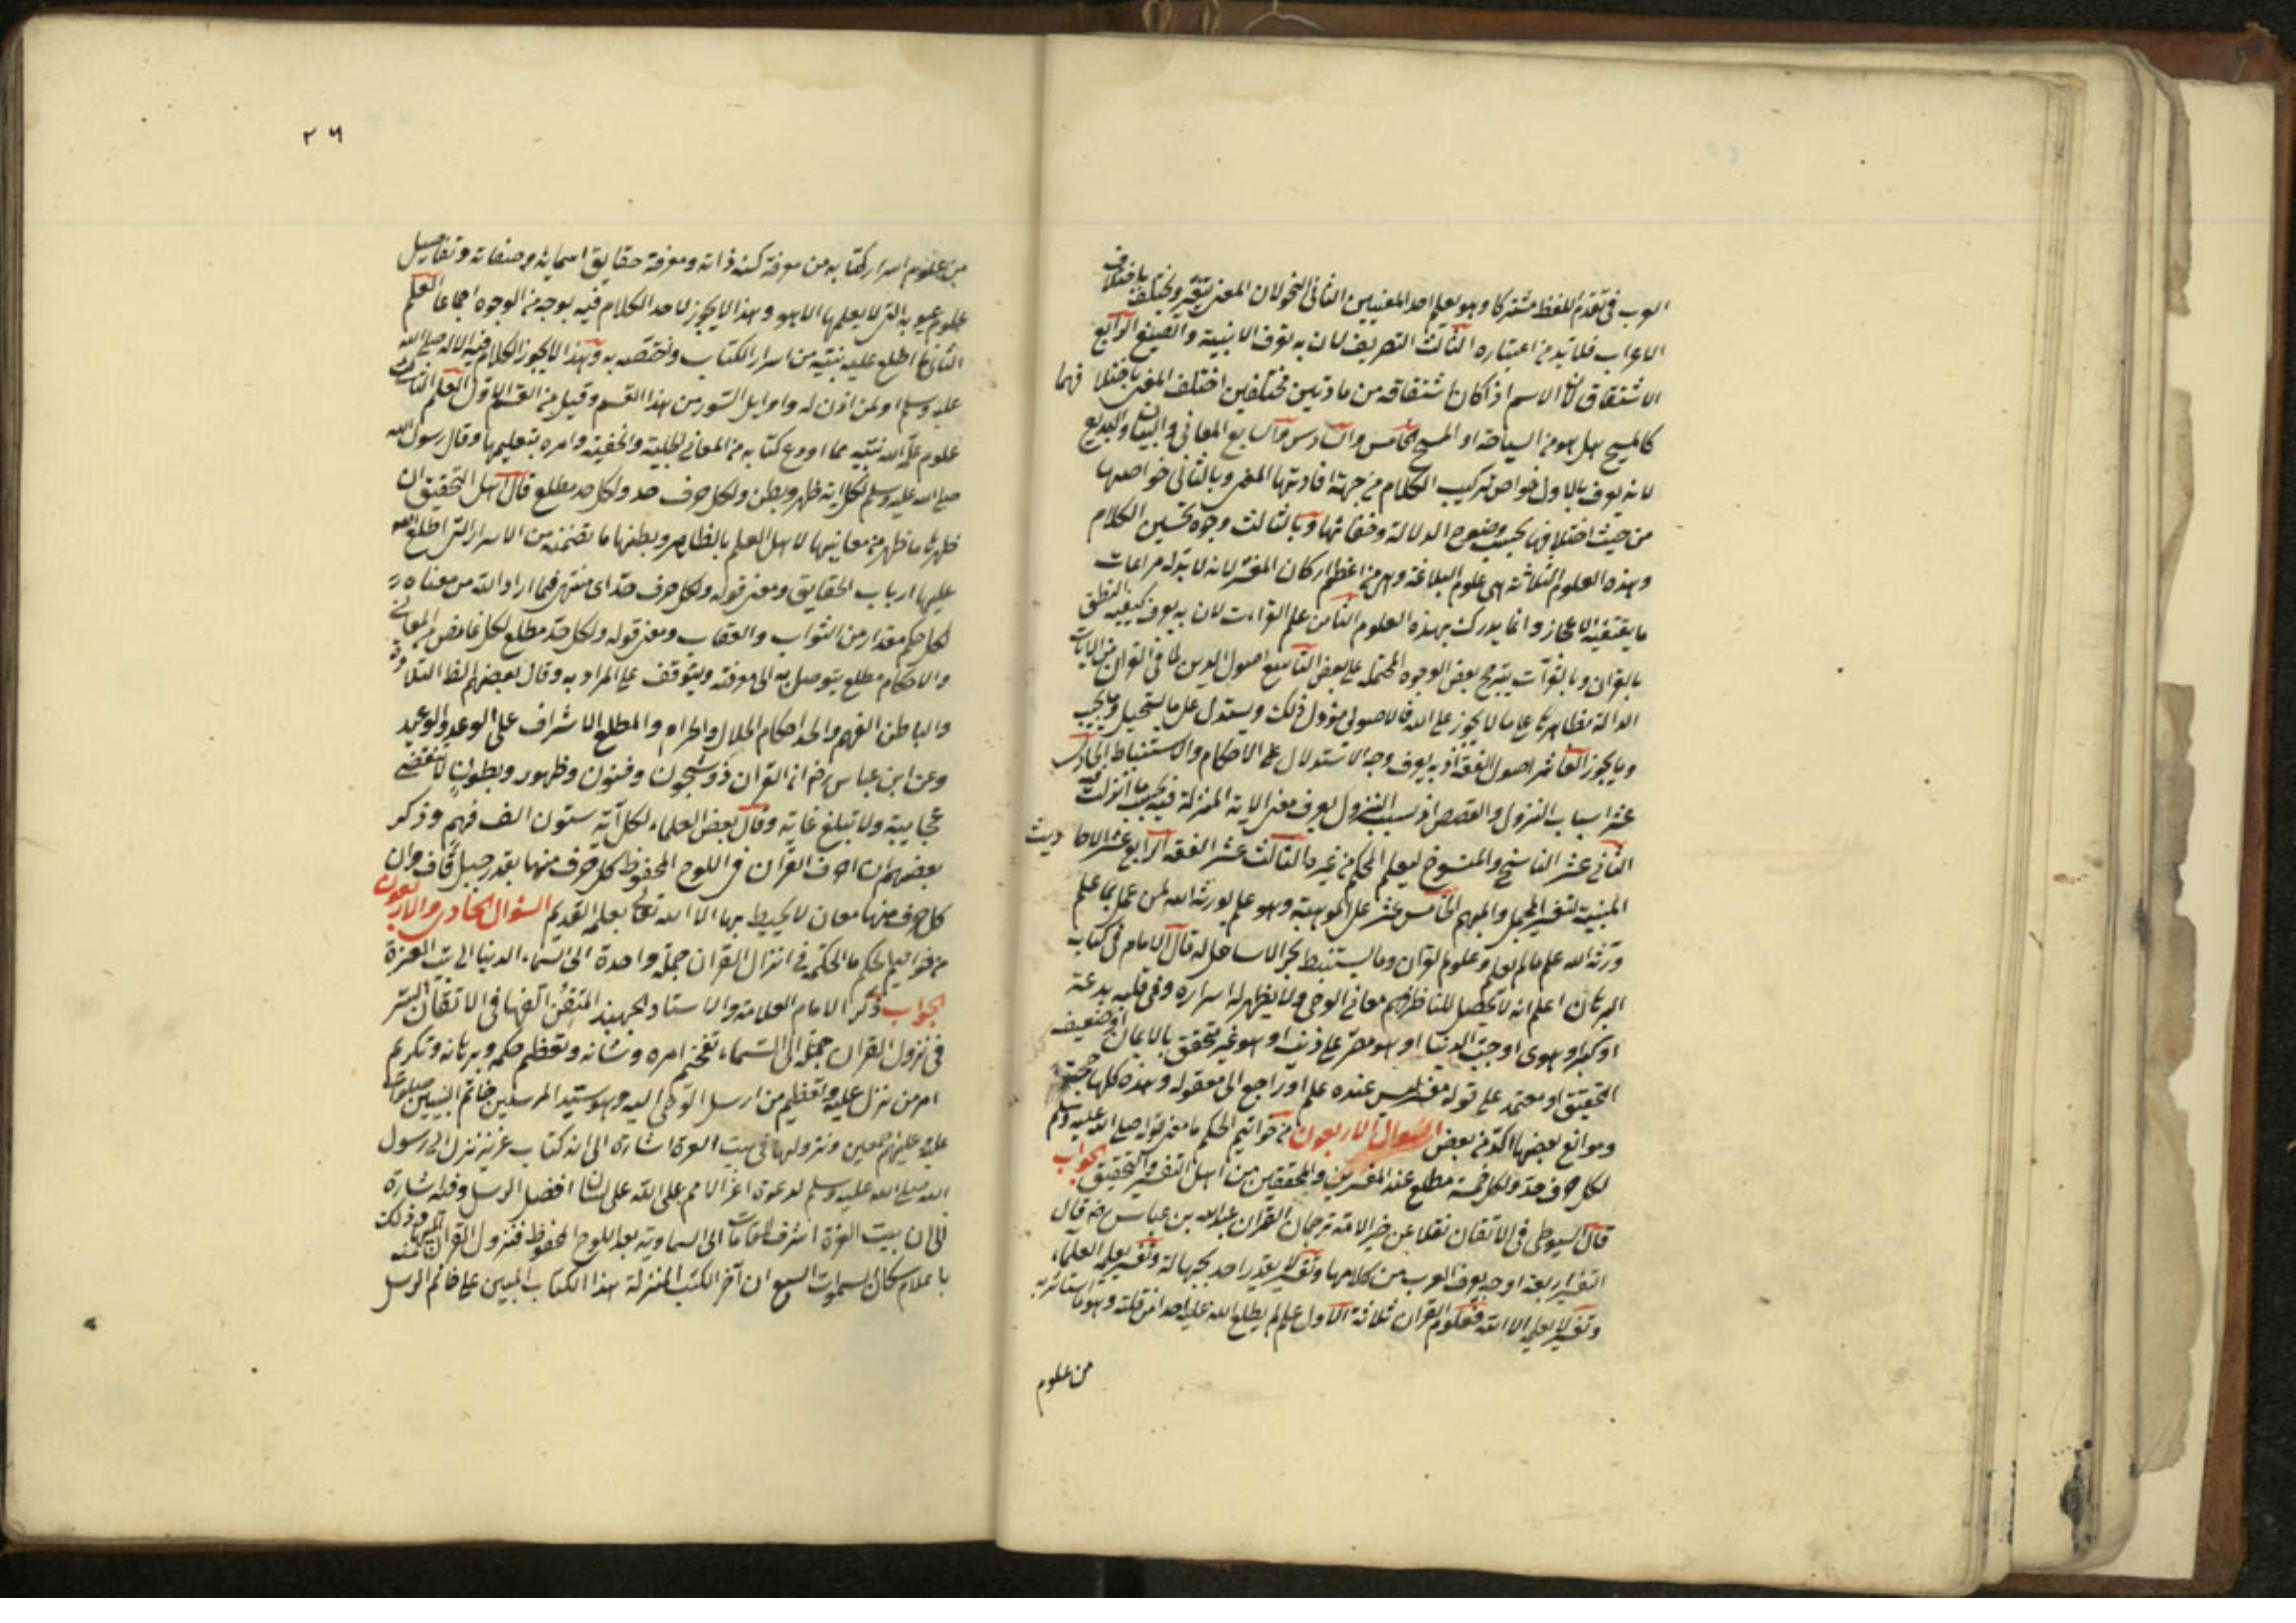 العرب فقد يقدم اللفظ مشتركا وهو يعلم احد المعنيين الثاني النحو لان المعنى يتغير ويختلف باختلاف
الاعراب فلا بد من اعتباره الثالث التصريف لان به تعرف الابنية والصيغ الرابع
الاشتقاق لان الاسم اذ كان اشتقاقه من مادتين مختلفين اختلف المعنى باختلافهما
كالمسيح هل هو من السياحة او المسح الخامس والسادس والسابع المعاني والبيان والبديع
لانه يعرف بالاول خواص تركيب الكلام من جهة افادتها المعنى وبالثاني خواصها
من حيث اختلافها بحسب وضوح الدلالة وخفائها وبالثالث وجوه تحسين الكلام
وهذه العلوم الثلاثة هى علوم البلاغة وهى من اعظم اركان المفسر لانه لا بد له مراعات
ما يقتضيه الاعجاز وانما يدرك بهذه العلوم الثامن علم القراءت لان به يعرف كيفية النطق
بالقران وبالقرآت يترجح بعض الوجوه المحتملة على بعض التاسع اصول الدين لما في القران من الايات
الدالة بظاهرها على ما لا يجوز على الله فالاصولى يؤول ذلك ويستدل على ما يستحيل وما يجب
وما يجوز العاشر اصول الفقه اذ به يعرف وجه الاستدلال على الاحكام والاستنباط الحادى
عشر اسباب النزول والقصص اذ بسبب النزول يعرف معنى الاية المنزلة فيه بحسب ما انزلت فيه
الثاني عشر الناسخ والمنسوخ ليعلم المحكم من غيره الثالث عشر الفقه الرابع عشر الاحاديث
المبينة لتفسير المجمل والمبهم الخامس عشر علم الموهبة وهو علم يورثه الله لمن عمل بما علم
ورثه الله علم ما لم يعلم وعلوم القران وما يستنبط بحر لا ساحل له قال الامام في كتابه
البرهان اعلم انه لا يحصل للناظر فهم معاني الوحى ولا يظهر له اسراره وفي قلبه بدعة
او كبر او هوى او حب الدنيا او هو مصر على ذنب او هو غير متحقق بالايمان او ضعيف
التحقيق او معتمد على قول مفسر ليس عنده علم او راجع الى معقوله وهذه كلها حجب
وموانع بعضها اكد من بعض السوال الاربعون من خواتيم الحكم ما معنى قوله صلى الله عليه وسلم
لكل حرف حد ولكل حد مطلع عند المفسرين والمحققين من اهل التفسير والتحقيق الجواب
قال السيوطى في الاتقان نقلا عن خير الامة ترجمان القران عبد الله بن عباس رضه قال
التفسير اربعة اوجه يعرفه العرب من كلامها وتفسير لا يعذر احد بجهالة وتفسير يعلمه العلماء
وتفسير لا يعلمه الا الله فعلوم القران ثلاثة الاول علم لم يطلع الله عليه احدا من خلقه وهو ما استاثر به
من علوم
٢٦
من علوم اسرار كتابه من معرفة كنه ذاته ومعرفة حقايق اسمائه وصفاته وتفاصيل
علوم غيوبه التى لا يعلمها الا هو وهذا لا يجوز لاحد الكلام فيه بوجه من الوجوه اجماعا العلم
الثاني ما اطلع عليه نبيه من اسرار الكتاب واختصه به وهذا لا يجوز الكلام فيه الا له صلى الله
عليه وسلم او لمن اذن له واوايل السور من هذا القسم وقيل من القسم الاول العلم الثالث
علوم علم الله نبيه مما اودع كتابه من المعاني الجلية والخفية وامره بتعليمها وقال رسول الله
صلى الله عليه وسلم لكل اية ظهر وبطن ولكل حرف حد ولكل حد مطلع قال اهل التحقيق ان
ظهرها ما ظهر من معانيها لاهل العلم بالظاهر وبطنها ما تضمنته من الاسرار التى اطلع الله
عليها ارباب الحقايق ومعنى قوله ولكل حرف حد اى منتهى فيما اراد الله من معناه
لكل حكم مقدار من الثواب والعقاب ومعنى قوله ولكل حد مطلع لكل غامض من المعاني
والاحكام مطلع يتوصل به الى معرفته ويتوقف على المراد به وقال بعضهم الظاهر التلاوة
والباطن الفهم والحد احكام الحلال والحرام والمطلع الاشراف على الوعد والوعيد
وعن ابن عباس رضه ان القران ذو شجون وفنون وظهور وبطون لا تنقضى
عجايبه ولا تبلغ غايته وقال بعض العلماء لكل آية ستون الف فهم وذكر
بعضهم ان احرف القرآن في اللوح المحفوظ كل حرف منها بقدر جبل قاف وان
كل حرف منها معان لا يحيط بها الا الله تعالى بعلمه القديم السؤال الحادى والاربعون
من خواتيم الحكم ما الحكمة في انزال القران جملة واحدة الى السماء الدنيا الى بيت العزة
الجواب ذكر الامام العلامة والاستاد الجهبذ المتقن الفهامة في الاتقان السر
في نزول القران جملة الى السماء تفخيم امره وشانه وتعظيم حكمه وبرهانه وتكريم
امر من نزل عليه وتعظيم من ارسل الوحى اليه وهو سيد المرسلين خاتم النبيين صلوات
عليه وعليهم اجمعين ونزولها في بيت العزة اشارة الى انه كتاب عزيز نزل الى رسول
الله صلى الله عليه وسلم لدعوة اعز الامم على الله على لسان افضل الرسل وفيه اشارة
الى ان بيت العزة اشرف المقامات السماوية بعد اللوح المحفوظ فنزول القرآن اليها وذلك
باعلام سكان السموات السبع ان آخر الكتب المنزلة هذا الكتاب المبين على خاتم الرسل